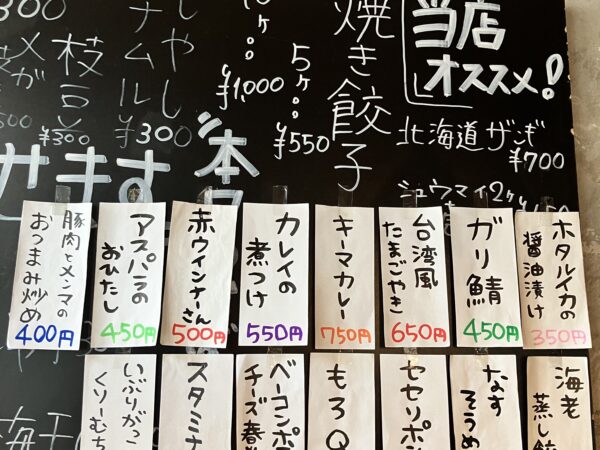 当店
オススメ!
焼き餃子
5ヶ…¥550
¥1,000
北海道ザンギ
¥700
シュウマイ2ヶ
ナムル
¥300
枝豆
¥300
300
ホタルイカの
醤油漬け
350円
ガリ鯖
450円
台湾風
たまごやき
650円
キーマカレー
750円
カレイの
煮つけ
550円
赤ウインナーさん
500円
アスパラの
おひたし
450円
豚肉とメンマの
おつまみ炒め
400円
海老
蒸し餃
なす
そうめ
セセリポン
もろQ
ベーコンポテ
チーズ春
スタミナ
いぶりがっこ
くりーむち